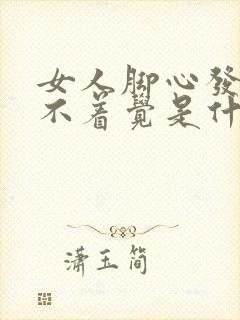 女人脚心發
不着覺是什
潇玉简